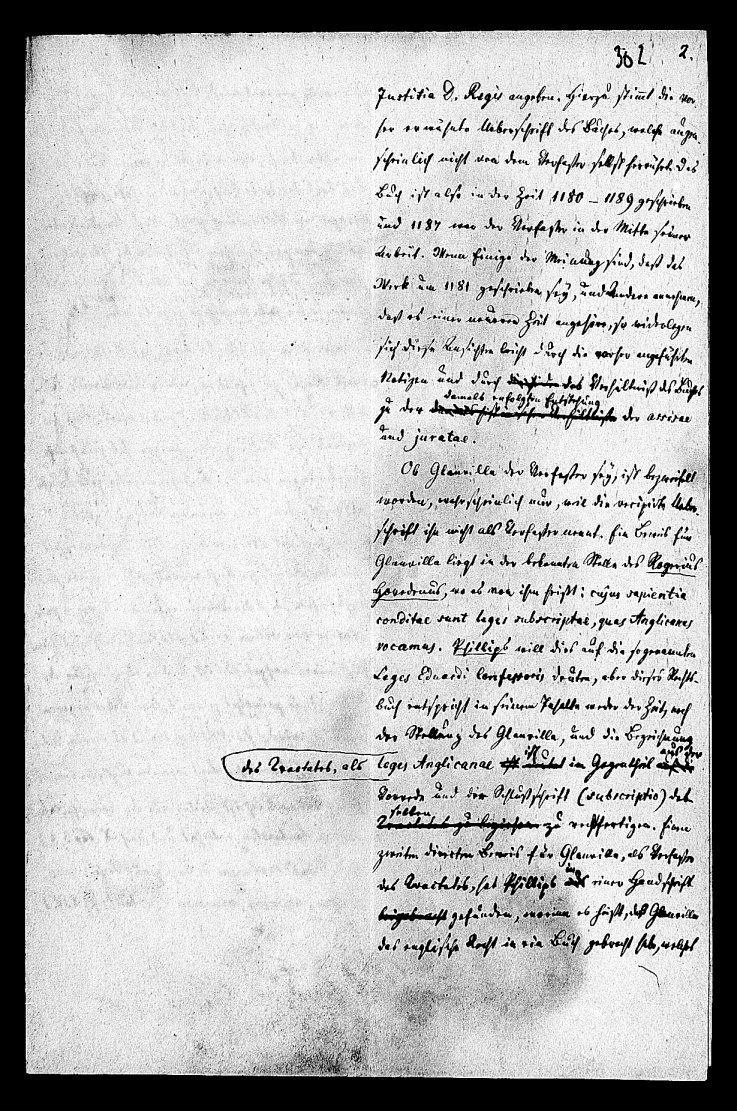 302 2.
Justitia D. Regis angeben. Hierzu stimmt die vor-
her erwähnte Ueberschrift des Buches, welche augen-
scheinlich nicht von dem Verfasser selbst herrührt. Das
Buch ist also in der Zeit 1180 – 1189 geschrieben
und 1187 war der Verfasser in der Mitte seiner
Arbeit. Wenn Einige der Meinung sind, daß das
Werk um 1181 geschrieben sey, und Andere annehmen,
daß es einer neueren Zeit angehöre, so widerlegen
sich diese Ansichten leicht durch die vorher angeführten
Notizen und durch das Verhältniß des Buches
damals erfolgten Entstehung
zu der der assisae
und juratae.
Ob Glanvilla der Verfasser sey, ist bezweifelt
worden, wahrscheinlich nur, weil die recipirte Ueber-
schrift ihn nicht als Verfasser nennt. Ein Beweis für
Glanvilla liegt in der bekannten Stelle des Rogerius
Hovedenus, wo es von ihm heißt: cujus sapientia
conditae sunt leges subscriptae, quas Anglicanas
vocamus. Phillips will dies auf die sogenannten
Leges Eduardi Confessoris deuten, aber dieses Rechts-
buch entspricht in seinem Inhalte weder der Zeit, noch
der Stellung des Glanvilla, und die Bezeichnung
des Tractates, als leges Anglicanae ist im Gegentheil aus der
Vorrede und der Schlußschrift (subscriptio) des-
selben zu rechtfertigen. Einen
zweiten directen Beweis für Glanvilla, als Verfasser
des Tractates, hat Phillips in einer Handschrift
gefunden, worin es heißt, daß Glanvilla
das englische Recht in ein Buch gebracht habe, welches